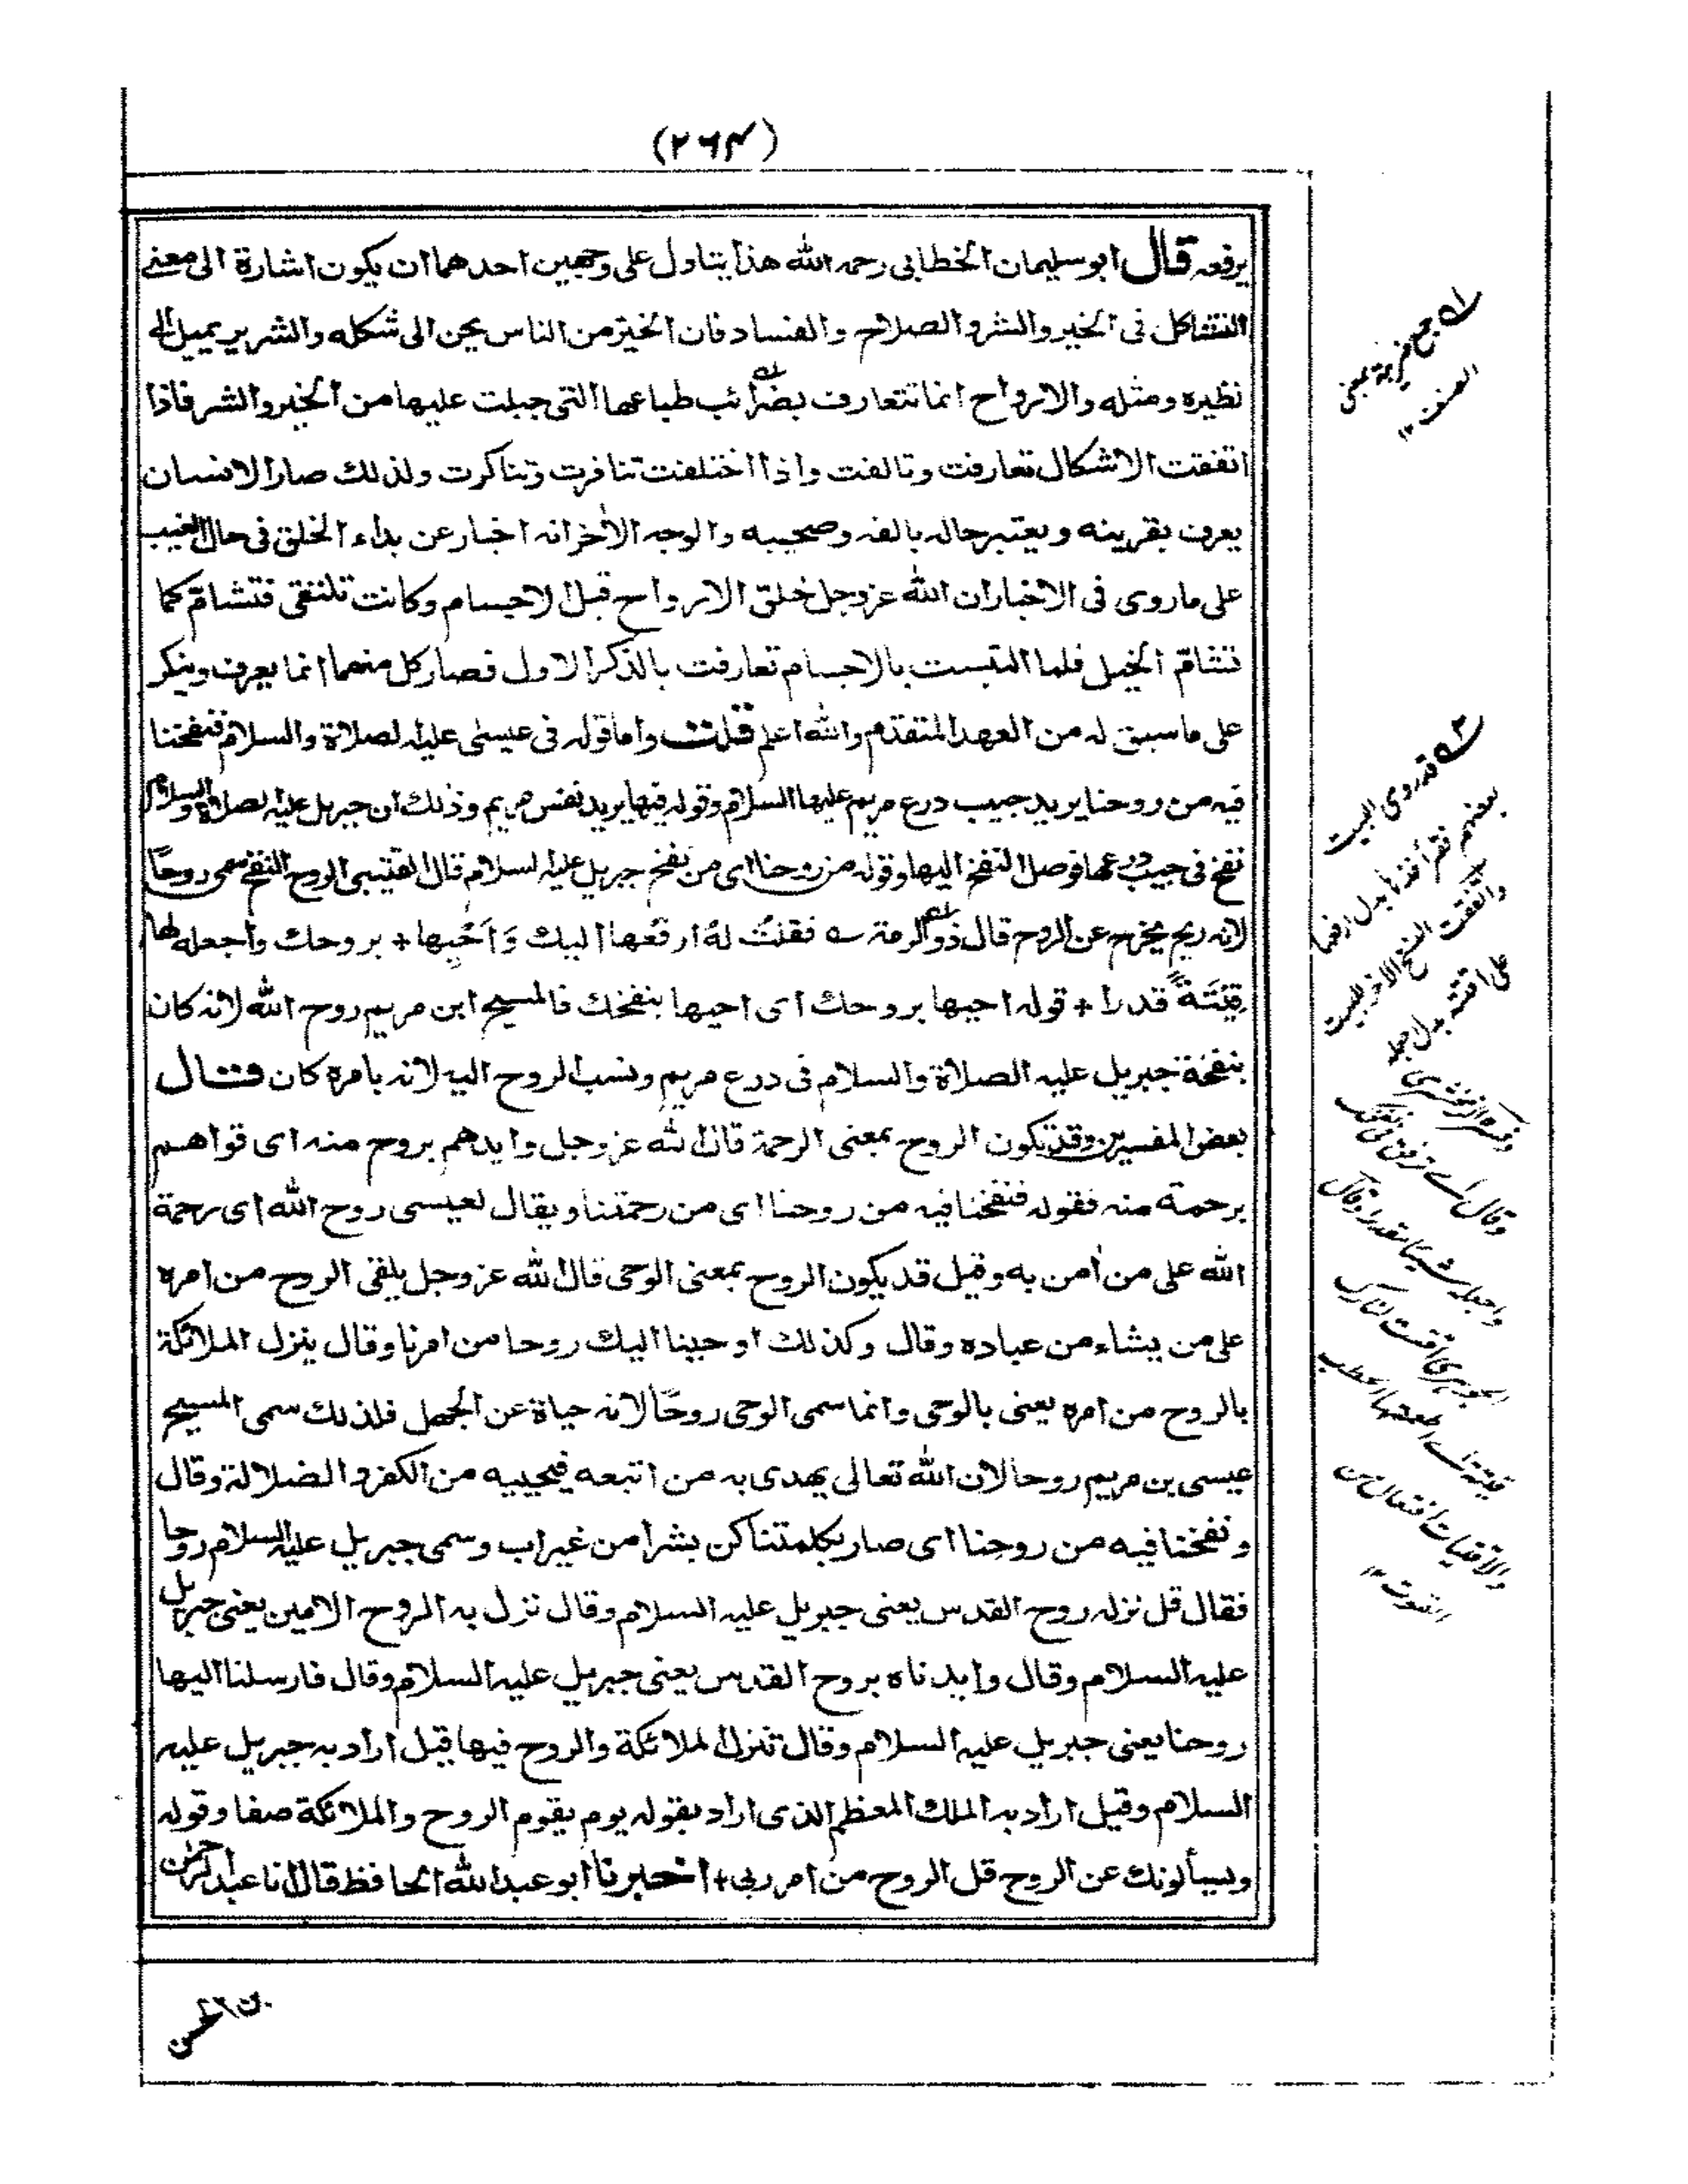 (۲۶۴)
يرفعه قال ابو سليمان الخطابى رحمه الله هذا يتاول على وجهين احدهما ان يكون اشارة الى معنى
التشاكل فى الخير والشر والصلاح والفساد فان الخيّر من الناس يحن الى شكله والشرير يميل الى
نظيره ومثله والارواح انما تتعارف بضرائب طباعها التى جبلت عليها من الخير والشر فاذا
اتفقت الاشكال تعارفت وتالفت واذا اختلفت تنافرت وتناكرت ولذلك صار الانسان
يعرف بقرينه ويعتبر حاله بالفه وصحيبه والوجه الاٰخر انه اخبار عن بداء الخلق فى حال الغيب
على ما روى فى الاخبار ان الله عز وجل خلق الارواح قبل الاجسام وكانت تلتقى فتشامّ كما
تشامّ الخيل فلما التبست بالاجسام تعارفت بالذكر الاول فصار كل منهما انما يعرف وينكر
على ما سبق له من العهد المتقدم والله اعلم قلت واما قوله فى عيسٰى عليه الصلاة والسلام فنفخنا
فيه من روحنا يريد جيب درع مريم عليها السلام وقوله فيها يريد نفس مريم وذلك ان جبريل عليه الصلاة والسلام
نفخ فى جيب درعها فوصل النفخ اليها وقوله من روحنا اى من نفخ جبريل عليه السلام قال القتيبى الروح النفخ سمى روحًا
لانه ريح يخرج عن الروح قال ذو الرمة ؎ فقلتُ لهُ ارفعها اليك وَاَحْيِها + بروحك واجعله لها
قِيْتَةً قدرا + قوله احيها بروحك اى احيها بنفخك فالمسيح ابن مريم روح الله لانه كان
بنفخة جبريل عليه الصلاة والسلام فى درع مريم ونسب الروح اليه لانه بامره كان قال
بعض المفسرين وقد تكون الروح بمعنى الرحمة قال الله عز وجل وايدهم بروح منه اى قواهم
برحمة منه فقوله فنفخنا فيه من روحنا اى من رحمتنا ويقال لعيسى روح الله اى رحمة
الله على من اٰمن به وقيل قد يكون الروح بمعنى الوحى قال الله عز وجل يلقى الروح من امره
على من يشاء من عباده وقال وكذلك اوحينا اليك روحا من امرنا وقال ينزل الملائكة
بالروح من امره يعنى بالوحى وانما سمى الوحى روحًا لانه حياة عن الجهل فلذلك سمى المسيح
عيسى بن مريم روحا لان الله تعالى يهدى به من اتبعه فيحييه من الكفر والضلالة وقال
ونفخنا فيه من روحنا اى صار بكلمتنا كن بشرا من غير اب وسمى جبريل عليه السلام روحا
فقال قل نزله روح القدس يعنى جبريل عليه السلام وقال نزل به الروح الامين يعنى جبريل
عليه السلام وقال وايدناه بروح القدس يعنى جبريل عليه السلام وقال فارسلنا اليها
روحنا يعنى جبريل عليه السلام وقال تنزل الملائكة والروح فيها قيل اراد به جبريل عليه
السلام وقيل اراد به الملك المعظم الذى اراد بقوله يوم يقوم الروح والملائكة صفا وقوله
ويسألونك عن الروح قل الروح من امر ربى + اخبرنا ابو عبد الله الحافظ قال انا عبد الرحمٰن
بن الحسن
جمع ضريبة بمعنى
الصفت ۱۲
قد روى البيت
بعضهم
واتفقت النسخ
وقال
والاقتيات افتعال من
القوت ۱۲